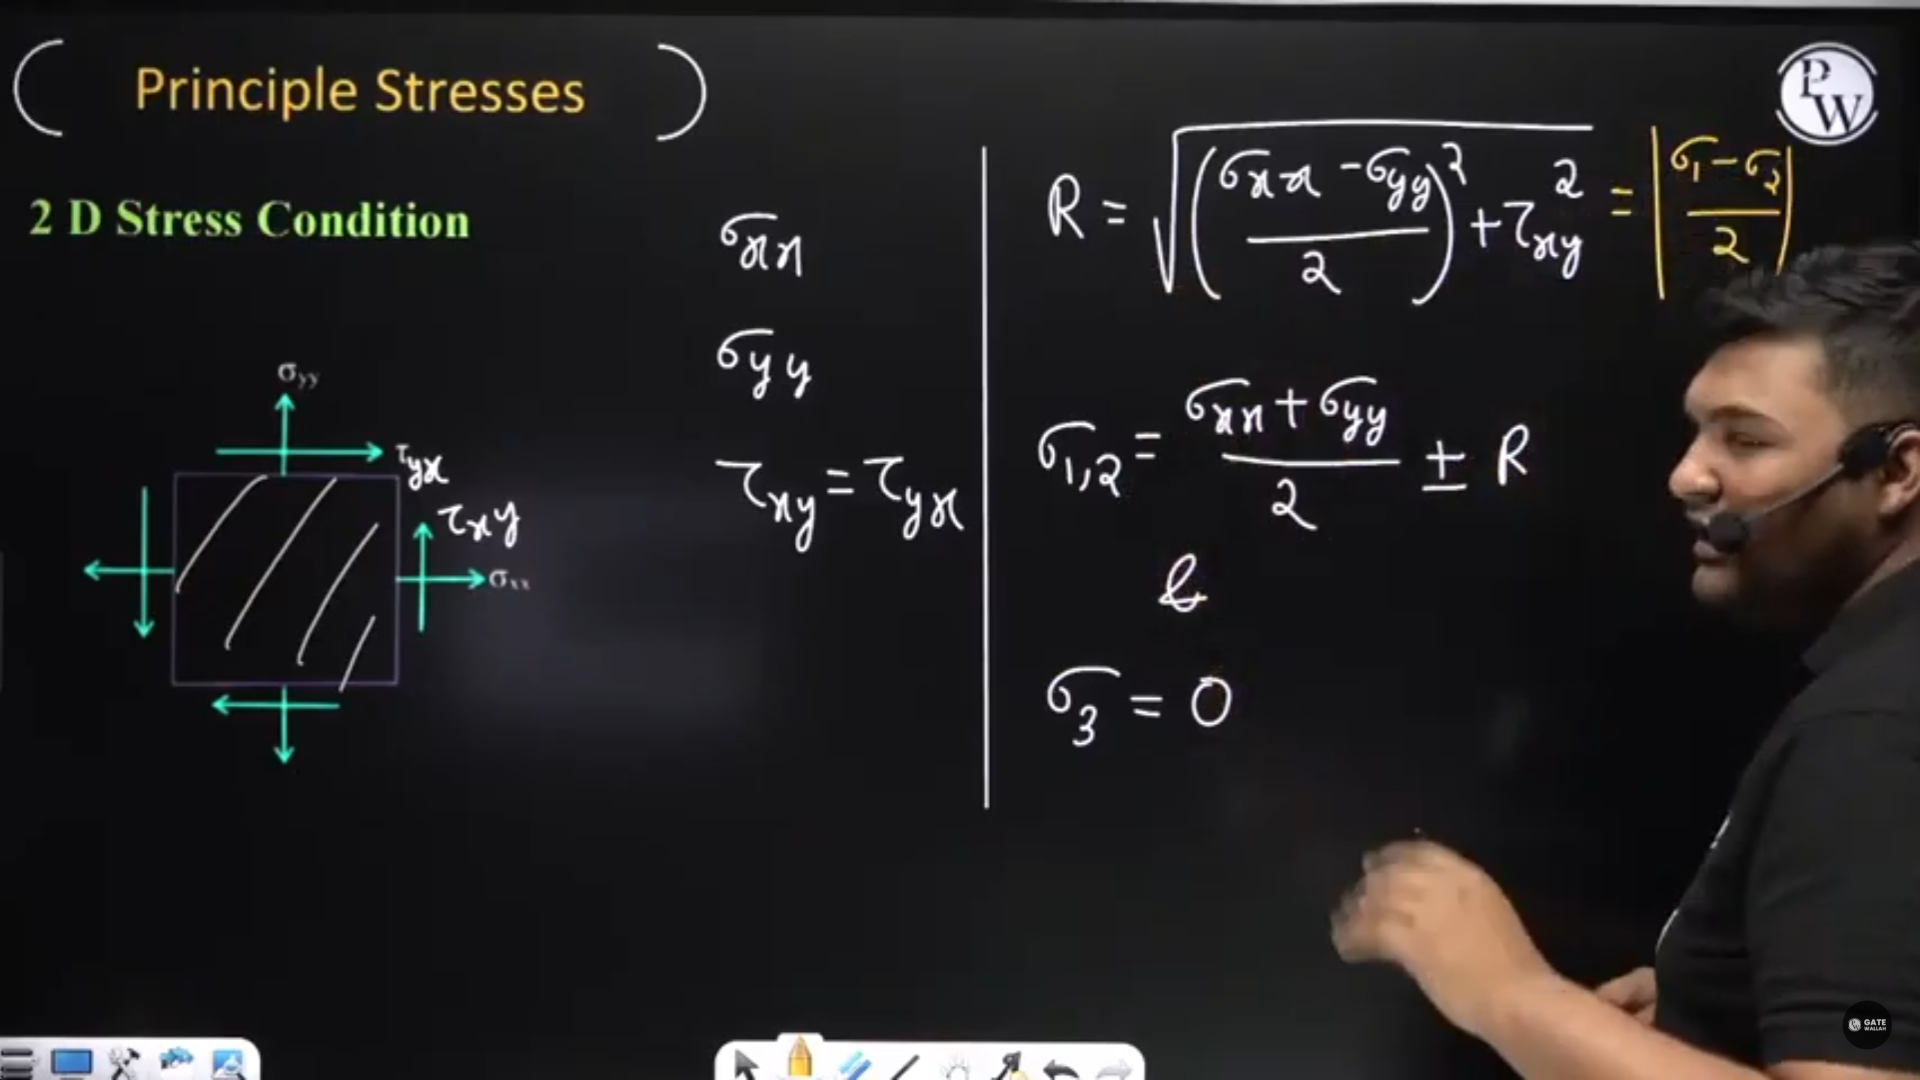 Principle Stresses
2 D Stress Condition
σyy
τyx
τxy
σxx
σxx
σyy
τxy = τyx
R = √((σxx - σyy)/2)² + τxy² = |(σ1 - σ2)/2|
σ1,2 = (σxx + σyy)/2 ± R
&
σ3 = 0
PW
GATE
WALLAH